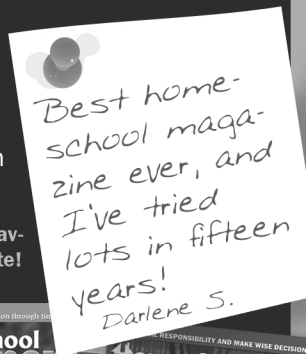 Best home-
school maga-
zine ever, and
I've tried
lots in fifteen
years!
Darlene S.
av-
te!
on through tim
hool
RESPONSIBILITY AND MAKE WISE DECISION